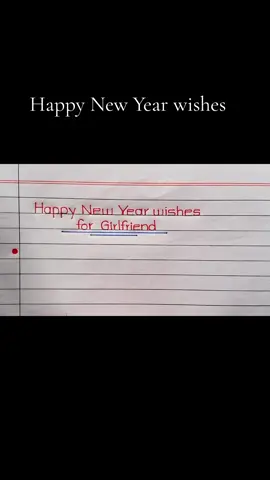 Happy New Year wishes
Happy New Year wishes
for Girlfriend